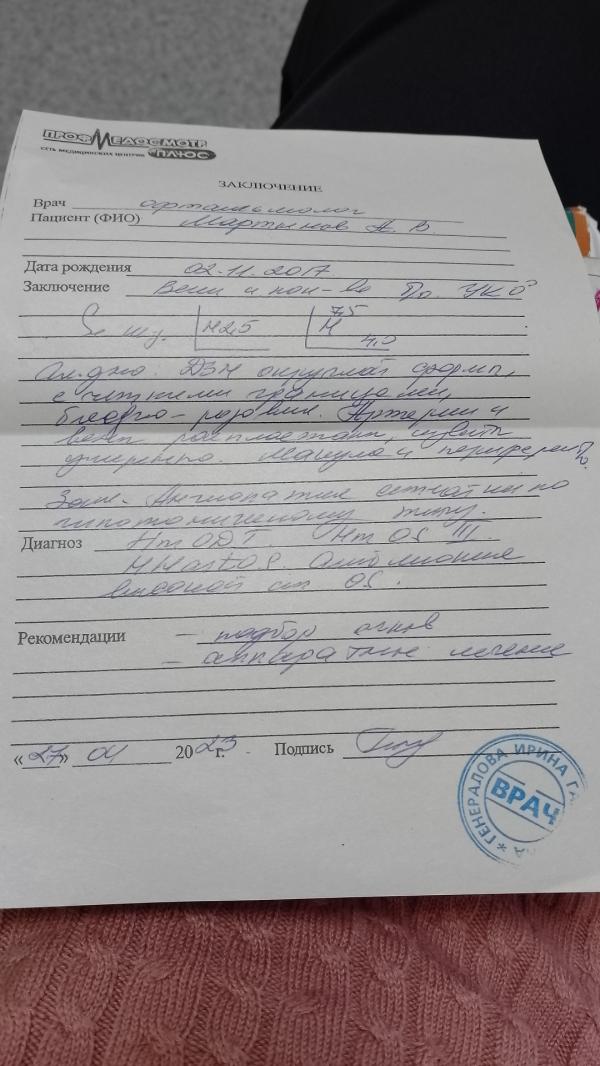 ПРОФМЕДОСМОТР
СЕТЬ МЕДИЦИНСКИХ ЦЕНТРОВ ПЛЮС
ЗАКЛЮЧЕНИЕ
Врач офтальмолог
Пациент (ФИО) Мартынов А. В.
Дата рождения 02.11.2017
Заключение
M2,5 M 7,5
4,0
Гл. дно: ДЗН округлой формы,
с четкими границами,
бледно-розовый. Артерии и
вены
умеренно. Макула и
Закл. Ангиопатия сетчатки по
гипотоническому типу.
Диагноз Hm OD I. Hm OS III
OS. Амблиопия
высокой ст OS.
Рекомендации – подбор очков
– аппаратное лечение
«27» 04 2023 г. Подпись
ГЕНЕРАЛОВА ИРИНА
ВРАЧ